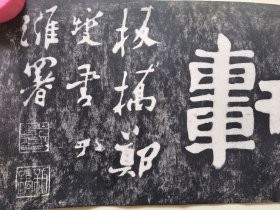 板橋鄭
燮書於
濰署